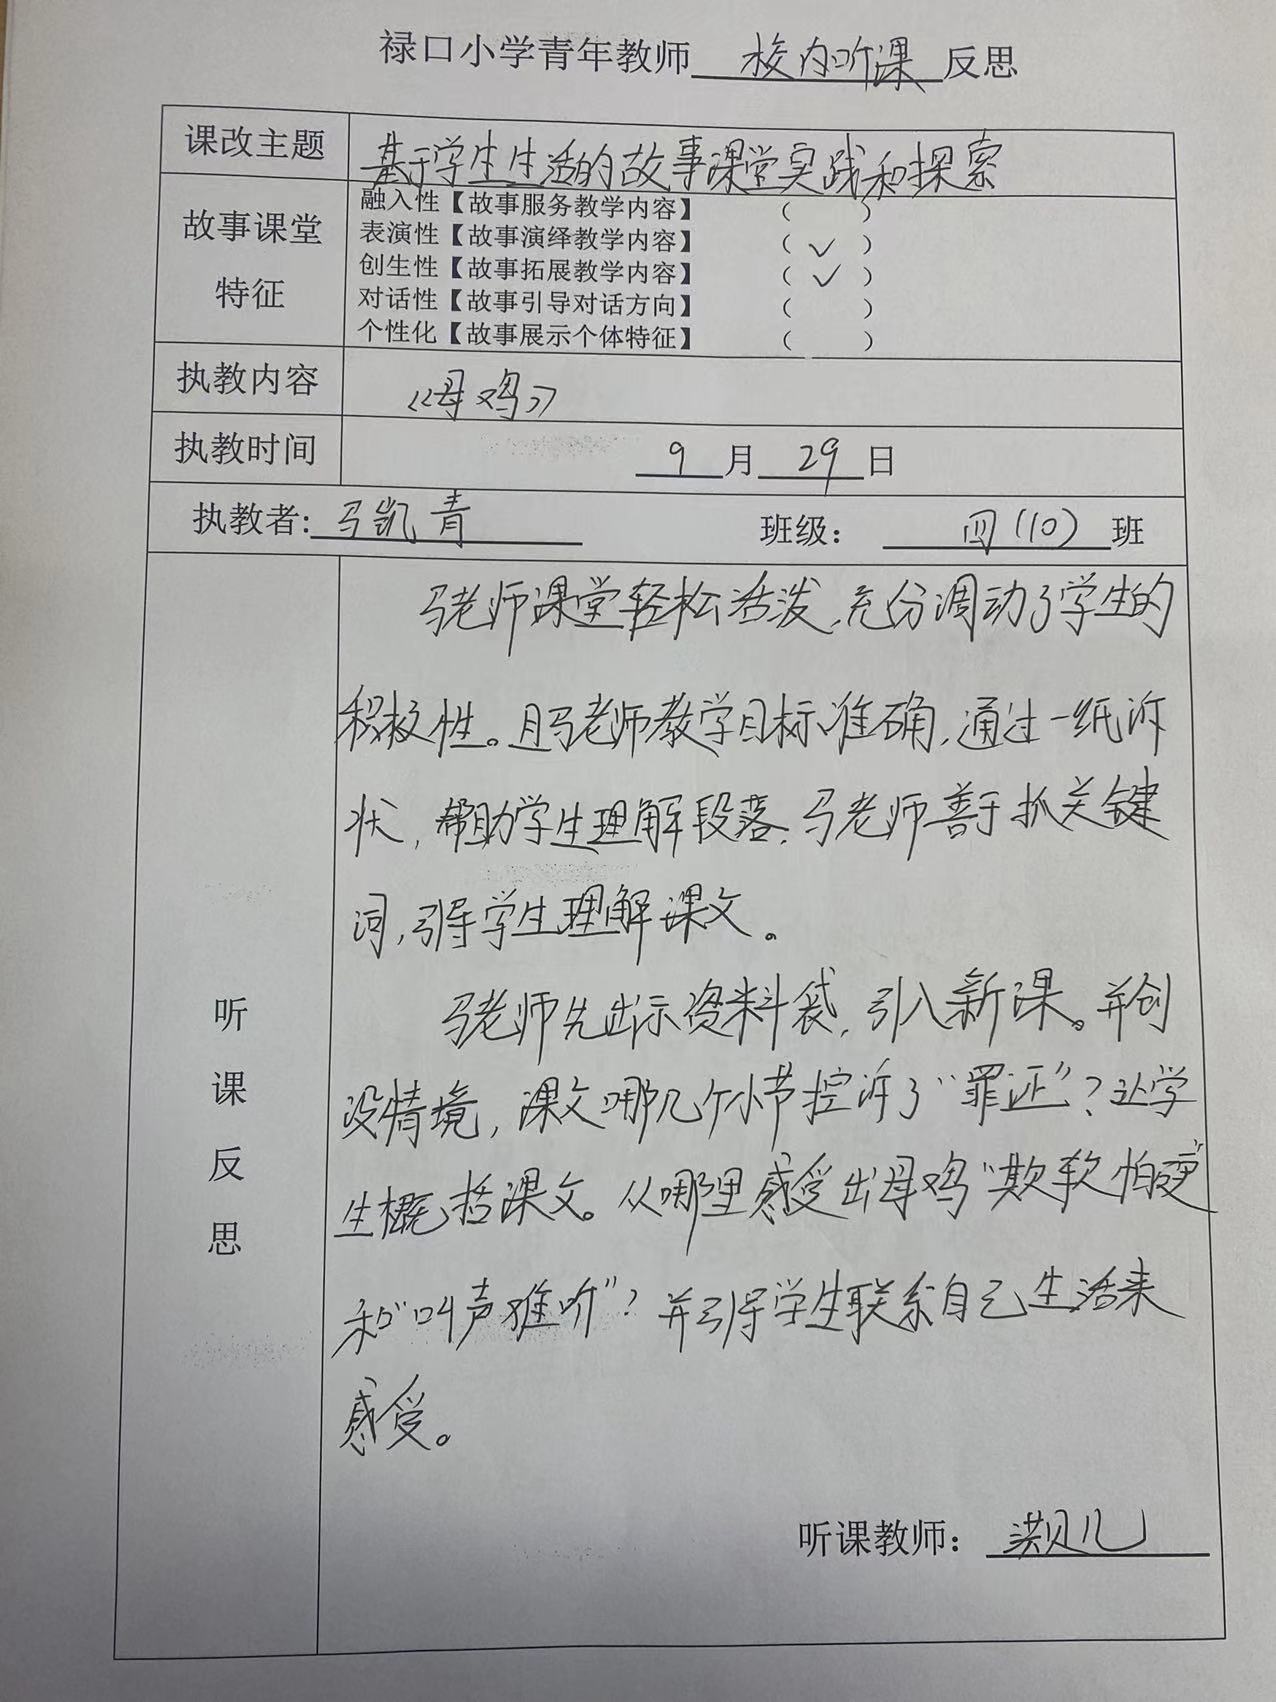 禄口小学青年教师 校内听课 反思
课改主题 基于学生生活的故事课堂实践和探索
故事课堂
特征
融入性【故事服务教学内容】 （ ）
表演性【故事演绎教学内容】 （ ✓ ）
创生性【故事拓展教学内容】 （ ✓ ）
对话性【故事引导对话方向】 （ ）
个性化【故事展示个体特征】 （ ）
执教内容 《母鸡》
执教时间 9 月 29 日
执教者: 马凯青 班级： 四（10） 班
听
课
反
思
马老师课堂轻松活泼，充分调动了学生的
积极性。且马老师教学目标准确，通过一纸诉
状，帮助学生理解段落，马老师善于抓关键
词，引导学生理解课文。
马老师先出示资料袋，引入新课。并创
设情境，课文哪几个小节控诉了“罪证”？让学
生概括课文。从哪里感受出母鸡“欺软怕硬”
和“叫声难听”？并引导学生联系自己生活来
感受。
听课教师： 洪贝儿